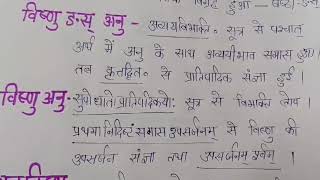 विग्रह हुआ — षष्ठी-ङस्
विष्णु ङस् अनु - अव्ययंविभक्ति॰ सूत्र से पश्चात्
अर्थ में अनु के साथ अव्ययीभाव समास हुआ।
तब कृत्तद्धित॰ से प्रातिपदिक संज्ञा हुई।
विष्णु अनु - सुपोधातोप्रातिपदिकयोः सूत्र से विभक्ति लोप।
प्रथमानिर्दिष्टं समास उपसर्जनम् से विष्णु की
उपसर्जन संज्ञा तथा उपसर्जनम् पूर्वम् ।